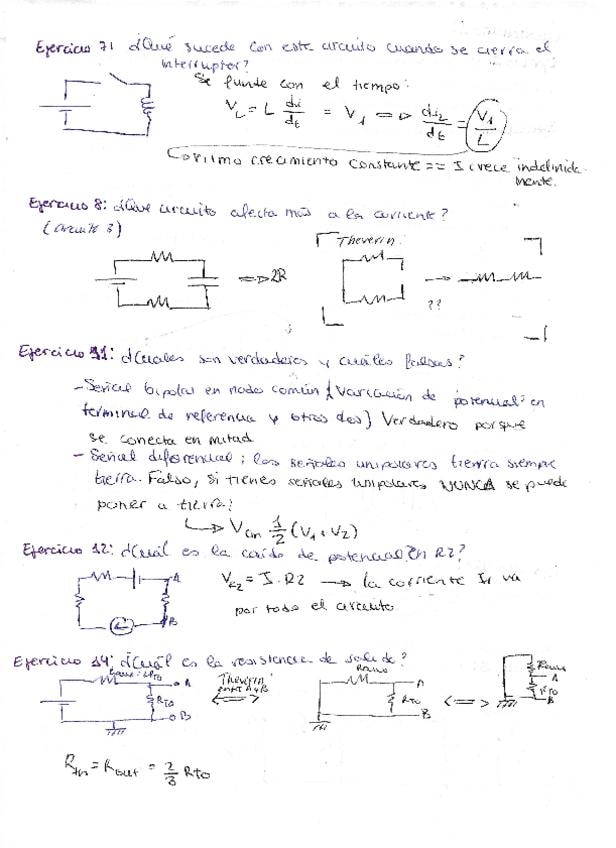 Ejercicio 7: ¿Qué sucede con este circuito cuando se cierra el
interruptor?
Se funde con el tiempo:
V_L = L di/dt = V1 => di2/dt = V1/L
ritmo crecimiento constante == I crece indefinida
mente.
Ejercicio 8: ¿Que circuito afecta más a la corriente?
(circuito 3)
Thevenin:
=> 2R
??
Ejercicio 11: ¿Cuales son verdaderas y cuáles falsas?
- Señal bipolar en modo común { variación de potencial en
terminal de referencia y otros dos } Verdadero porque
se conecta en mitad
- Señal diferencial; las señales unipolares tierra siempre
tierra. Falso, si tienes señales unipolares NUNCA se puede
poner a tierra!
V 1/2 (V1 + V2)
Ejercicio 12: ¿Cuál es la caída de potencial en R2?
A
V_R2 = I · R2 → la corriente I1 va
por todo el circuito
B
Ejercicio 14: ¿Cuál es la resistencia de salida?
A
R_TO
B
Thevenin
entre A y B
A
R_TO
B
<=>
A
R_TO
B
R_th = R_out = 2/3 R_TO